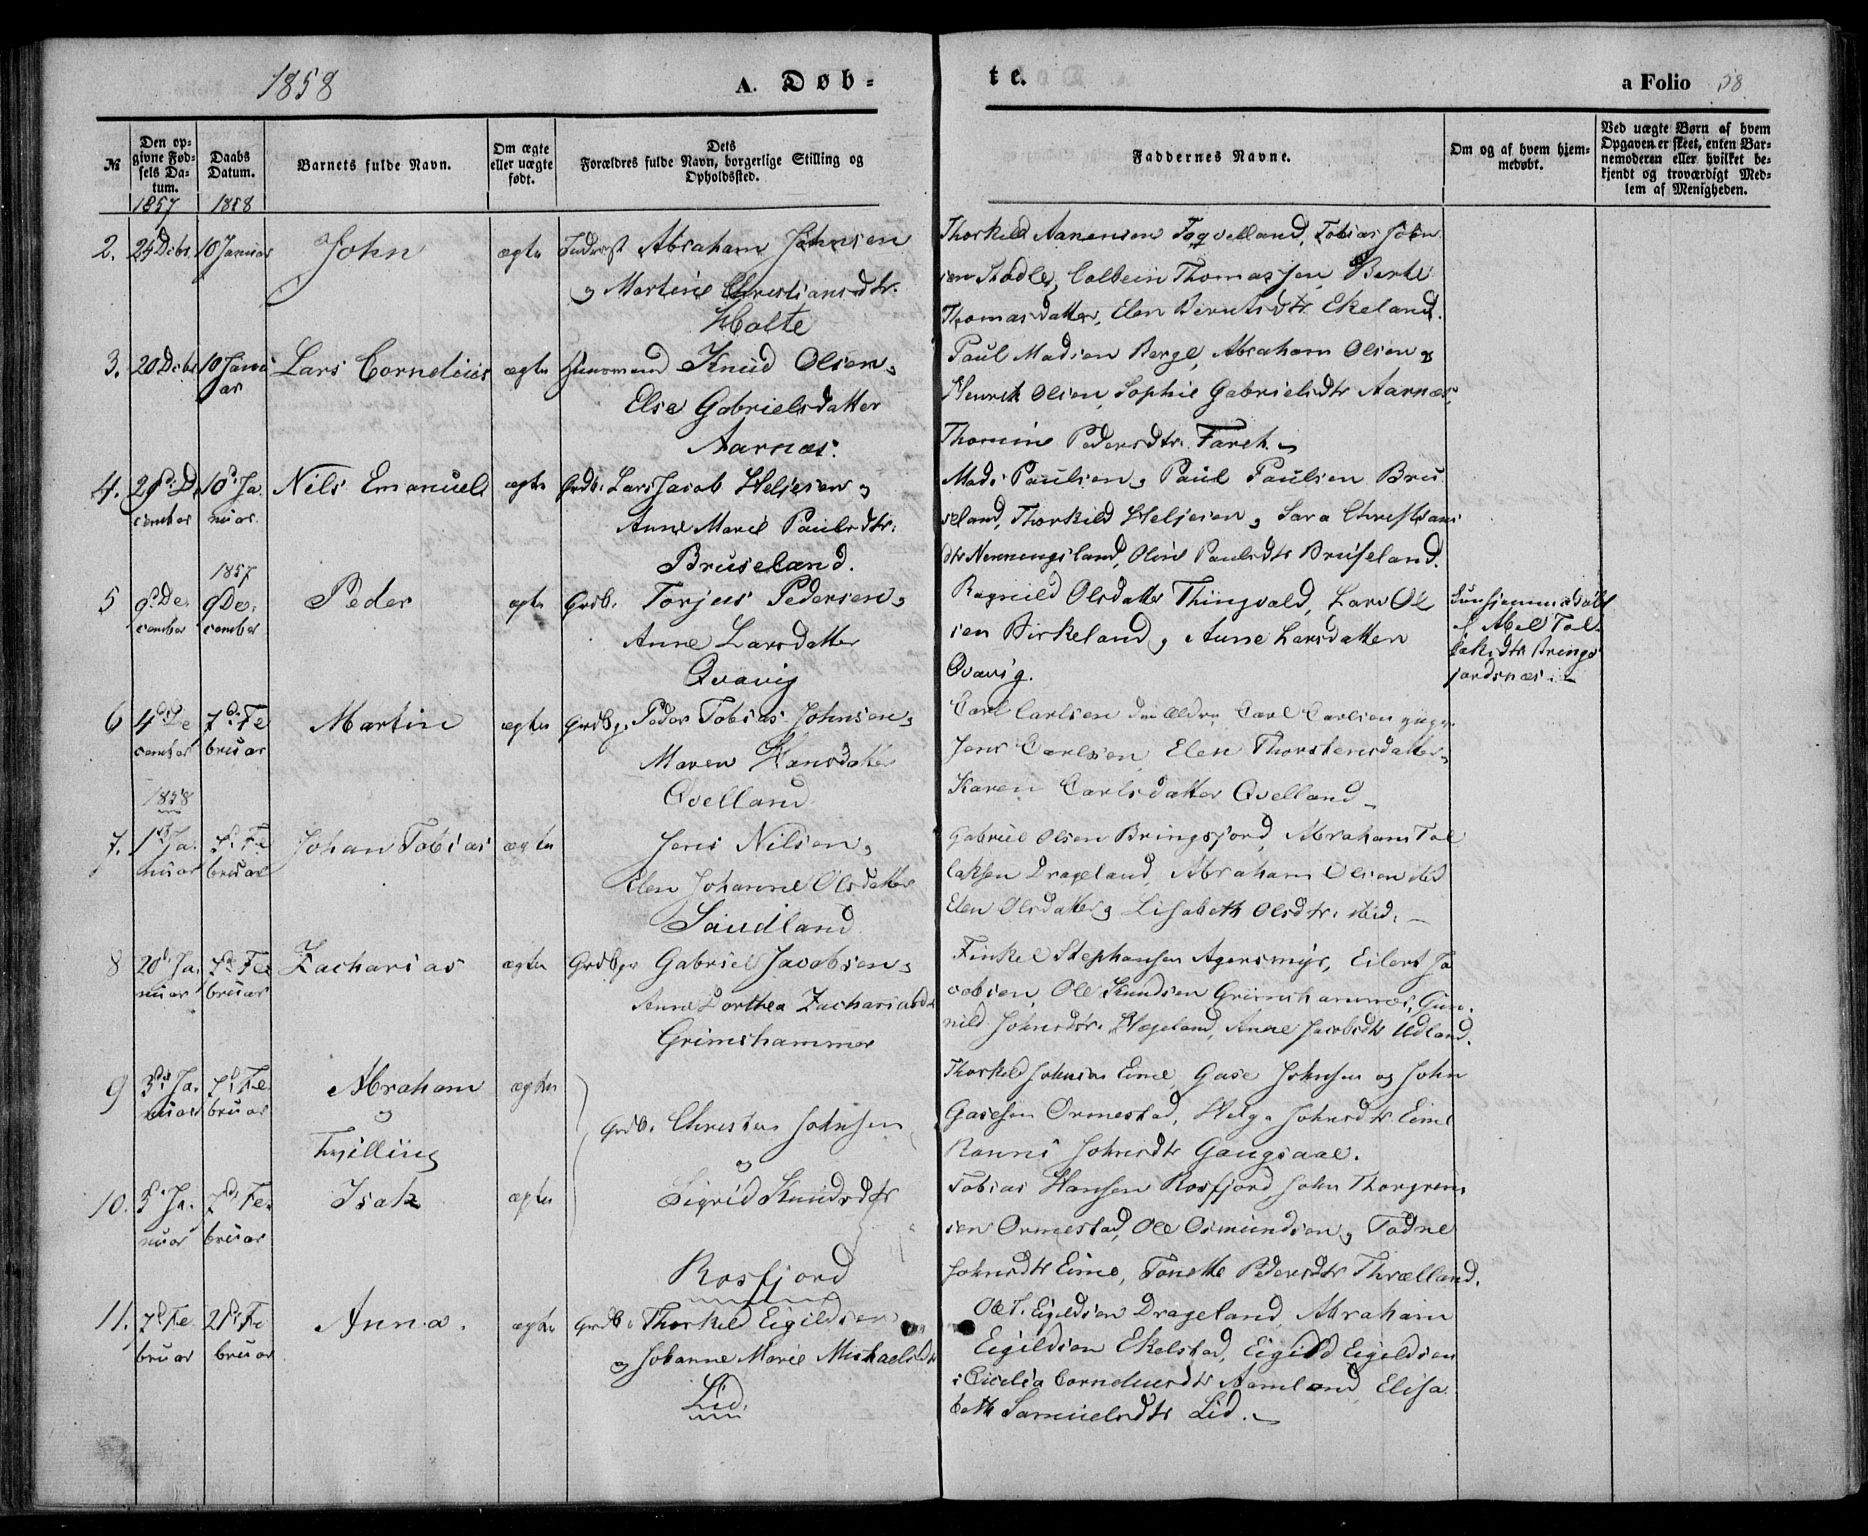 1858
A. Døb-
te.
a Folio 38
№
Den opgivne Fødsels Datum.
Daabs Datum.
Barnets fulde Navn.
Om ægte eller uægte født.
Dets Forældres fulde Navn, borgerlige Stilling og Opholdssted.
Faddernes Navne.
Om og af hvem hjemmedøbt.
Ved uægte Børn af hvem Opgaven er skeet, enten Barnemoderen eller hvilket bekjendt og troværdigt Medlem af Menigheden.
1857 1858
2. 25 Dcbr. 10 Januar John ægte Inderst Abraham Johnsen
og Martine Christiansdtr.
Holte
Thorkild Aanensen Fogvelland, Tobias John
sen Stødle, Colbein Thomassen, Berte
Thomasdatter, Elen Berntsdtr Ekeland.
3. 20 Dcbr 10 Janu
ar Lars Cornelius ægte Huusmand Knud Olsen,
Else Gabrielsdatter
Aarnæs.
Paul Madsen Berge, Abraham Olsen og
Henrik Olsen, Sophie Gabrielsdtr Aarnæs,
Thomine Pedersdtr. Fareth.
4. 29d. De
cember 10d. Ja
nuar. Nils Emanuel ægte Grdb. Lars Jacob Heljesen og
Anne Marie Paulsdtr.
Bruseland.
Mads Paulsen, Paul Paulsen Bru
seland, Thorkild Heljesen, Sara Christians
dtr Nenningsland, Oline Paulsdtr Bruseland.
1857
5 9d. De.
cember 9 De.
cember Peder ægte Grdb. Torjus Pedersen,
Anne Larsdatter
Qvavig
Ragnild Olsdatter Thingvald, Lars Ol
sen Birkeland, Anne Larsdatter
Qvavig.
Kun hjemmedøbt
af Abel Tol
laksdtr Brings
jordsnæs.
6 4de De
cember 7d. Fe
bruar Martin ægte Grdbgr Peder Tobias Johnsen,
Maren Hansdatter
Qvelland.
Carl Carlsen den Ældre, Carl Carlsen yngre
Jens Carlsen, Elen Thorstensdatter
Karen Carlsdatter Qvelland
1858
7. 1ste Ja.
nuar 7d. Fe
bruar Johan Tobias ægte Jens Nilsen,
Elen Johanne Olsdatter
Saudland
Gabriel Olsen Bringsjord, Abraham Tol
laksen Drageland, Abraham Olsen ibid
Elen Olsdatter, Lisabeth Olsdtr. ibid.
8 20d. Ja.
nuar 7de Fe
bruar Zacharias ægte Grdbgr Gabriel Jacobsen,
Anne Dorthea Zachariasdtr
Grimshammer
Finkel Stephansen Agersmyr, Eilert Ja
cobsen, Ole Knudsen Grimshammer, Gun.
nild Johnsdtr. Hægeland, Anne Jacobsdtr Udland.
9 3die Ja.
nuar 7d. Fe
bruar Abraham ægte
og
Tvilling
Grdb. Christen Johnsen
og
Thorkild Johnsen Eime, Gase Johnsen og John
Gasesen Ormestad, Helga Johnsdtr Eime
Ranni Johnsdtr Gaugsaae.
10. 3d. Ja.
nuar 7de Fe.
bruar Isak ægte Sigrid Knudsdtr
Rosfjord
Tobias Hansen Rosfjord John Thorgrim
sen Ormestad, Ole Osmundsen, Tadne
Johnsdtr Eime, Tonette Pedersdtr Thrælland.
11. 7d. Fe
bruar 21d. Fe
bruar Anna. ægte Grdb. Thorkild Eigildsen
og Johanne Marie Michaelsdtr
Lid.
Ole T. Eigildsen Drageland, Abraham
Eigildsen Ekelstad, Eigild Eigildsen
Cicilia Corneliusdtr Aamland, Elisa
beth Samuelsdtr Lid.